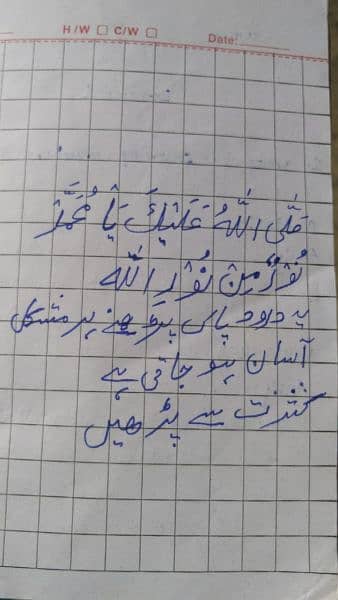 H/W C/W Date:
صَلَّی اللّٰہُ عَلَیْکَ یَا مُحَمَّدُ
نُوْرٌ مِّنْ نُوْرِ اللّٰہ
یہ درود پاک پڑھنے ہر مشکل
آسان ہو جاتی ہے
کثرت سے پڑھیں